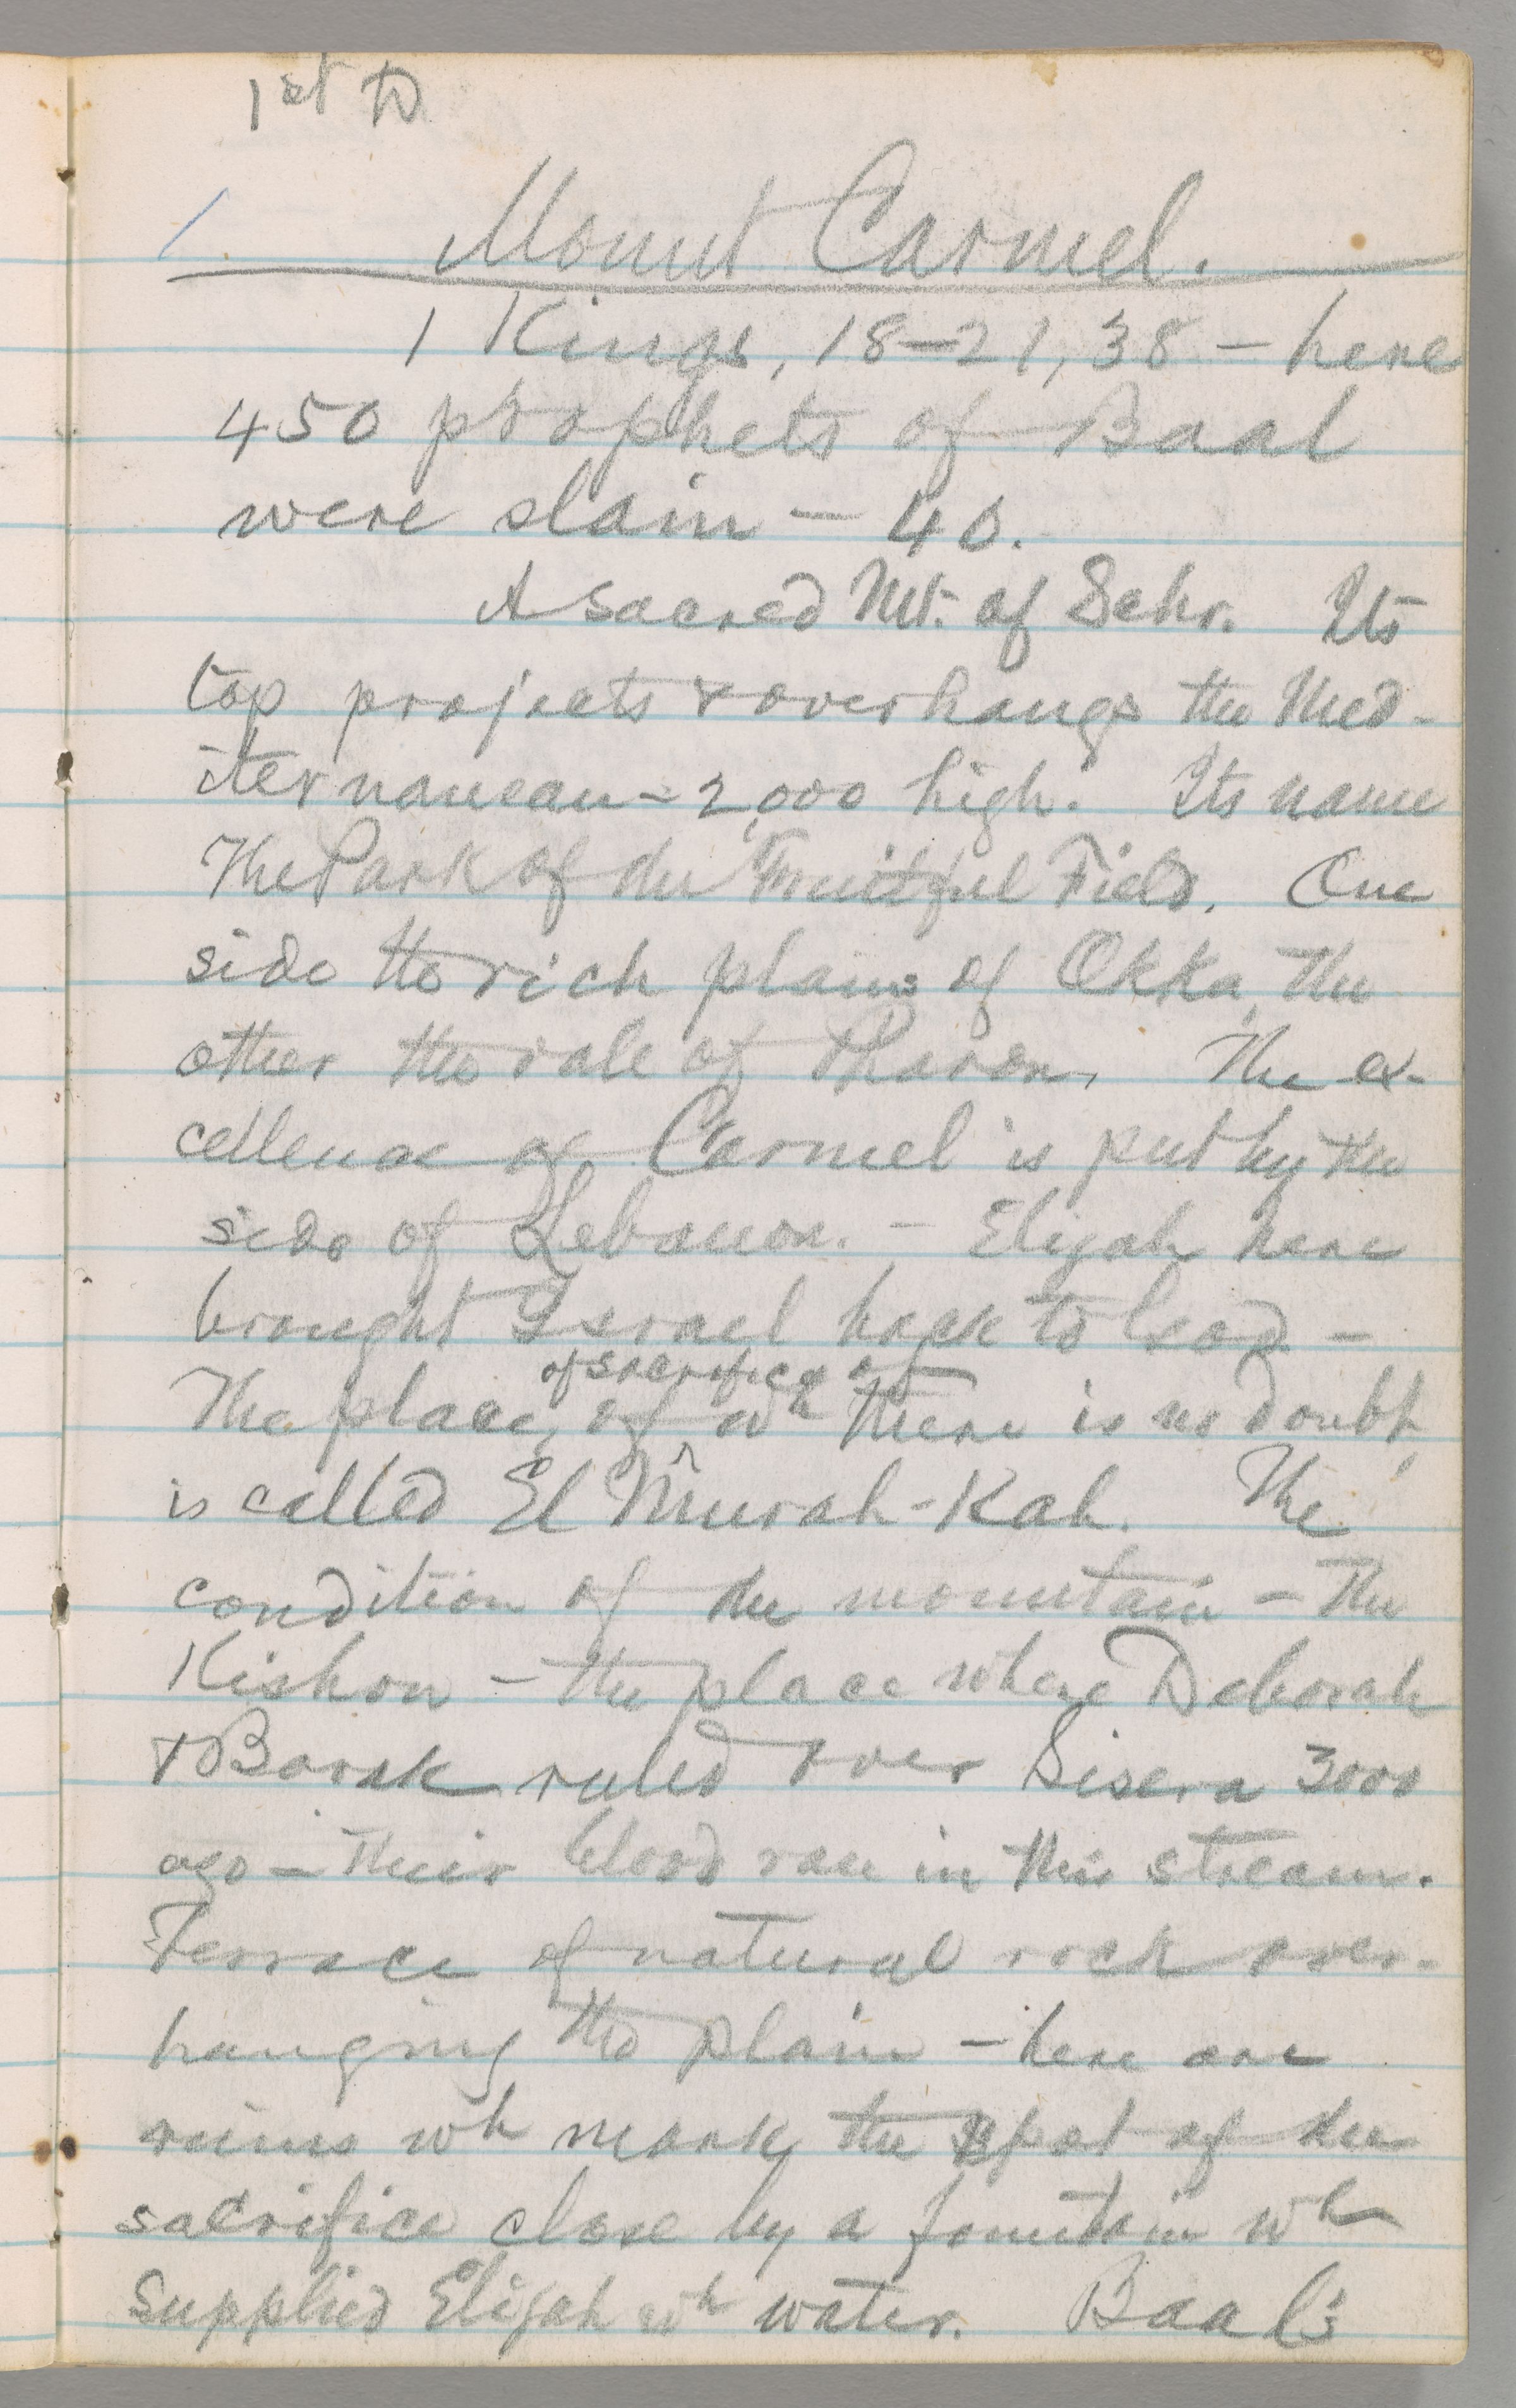 1st D
1. Mount Carmel.
1 Kings, 18-21, 38 - here
450 prophets of Baal
were slain - 40.
A sacred Mt. of Schr. Its
top projects & overhangs the Med-
iterranean - 2,000 high. Its name
The Park of the Fruitful Field. One
side the rich plains of Akka, the
other the vale of Sharon. The ex-
cellence of Carmel is put by the
side of Lebanon. - Elijah here
brought Israel back to God -
The place of sacrifice of wh there is no doubt,
is called El Murah-Kah. The
condition of the mountain - the
Kishon - the place where Deborah
& Barak ruled over Sisera 3000
ago - their blood ran in this stream.
Terrace of natural rock over-
hanging the plain - here are
ruins wh mark the spot of the
sacrifice close by a fountain wh
supplied Elijah wh water. Baal's